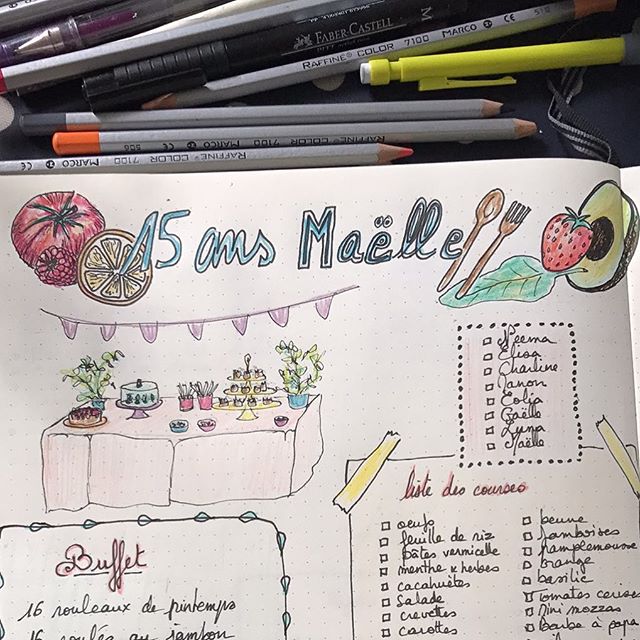 FABER-CASTELL
M
RAFFINÉ COLOR 7100 MARCO
506 RAFFINÉ COLOR 7100 MARCO
RAFFINÉ COLOR 7100 MARCO
15 ans Maëlle
Neema
Elisa
Charline
Manon
Eolia
Gaëlle
Luna
Maëlle
liste des courses
oeufs
feuille de riz
Pâtes vermicelle
menthe x herbes
cacahuètes
Salade
crevettes
carottes
beurre
framboises
pamplemousse
orange
basilic
tomates cerises
Mini mozzas
Barbe à papa
Buffet
16 rouleaux de printemps
16 roulés au jambon